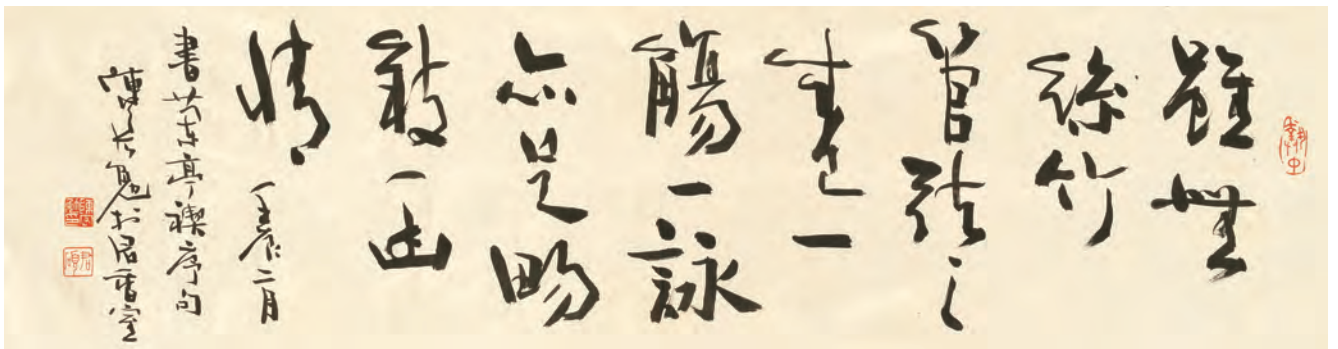 雖無
絲竹
管弦之
盛一
觴一詠
亦足暢
敘幽
情 壬辰二月
書蘭亭禊序句
陳於君香室